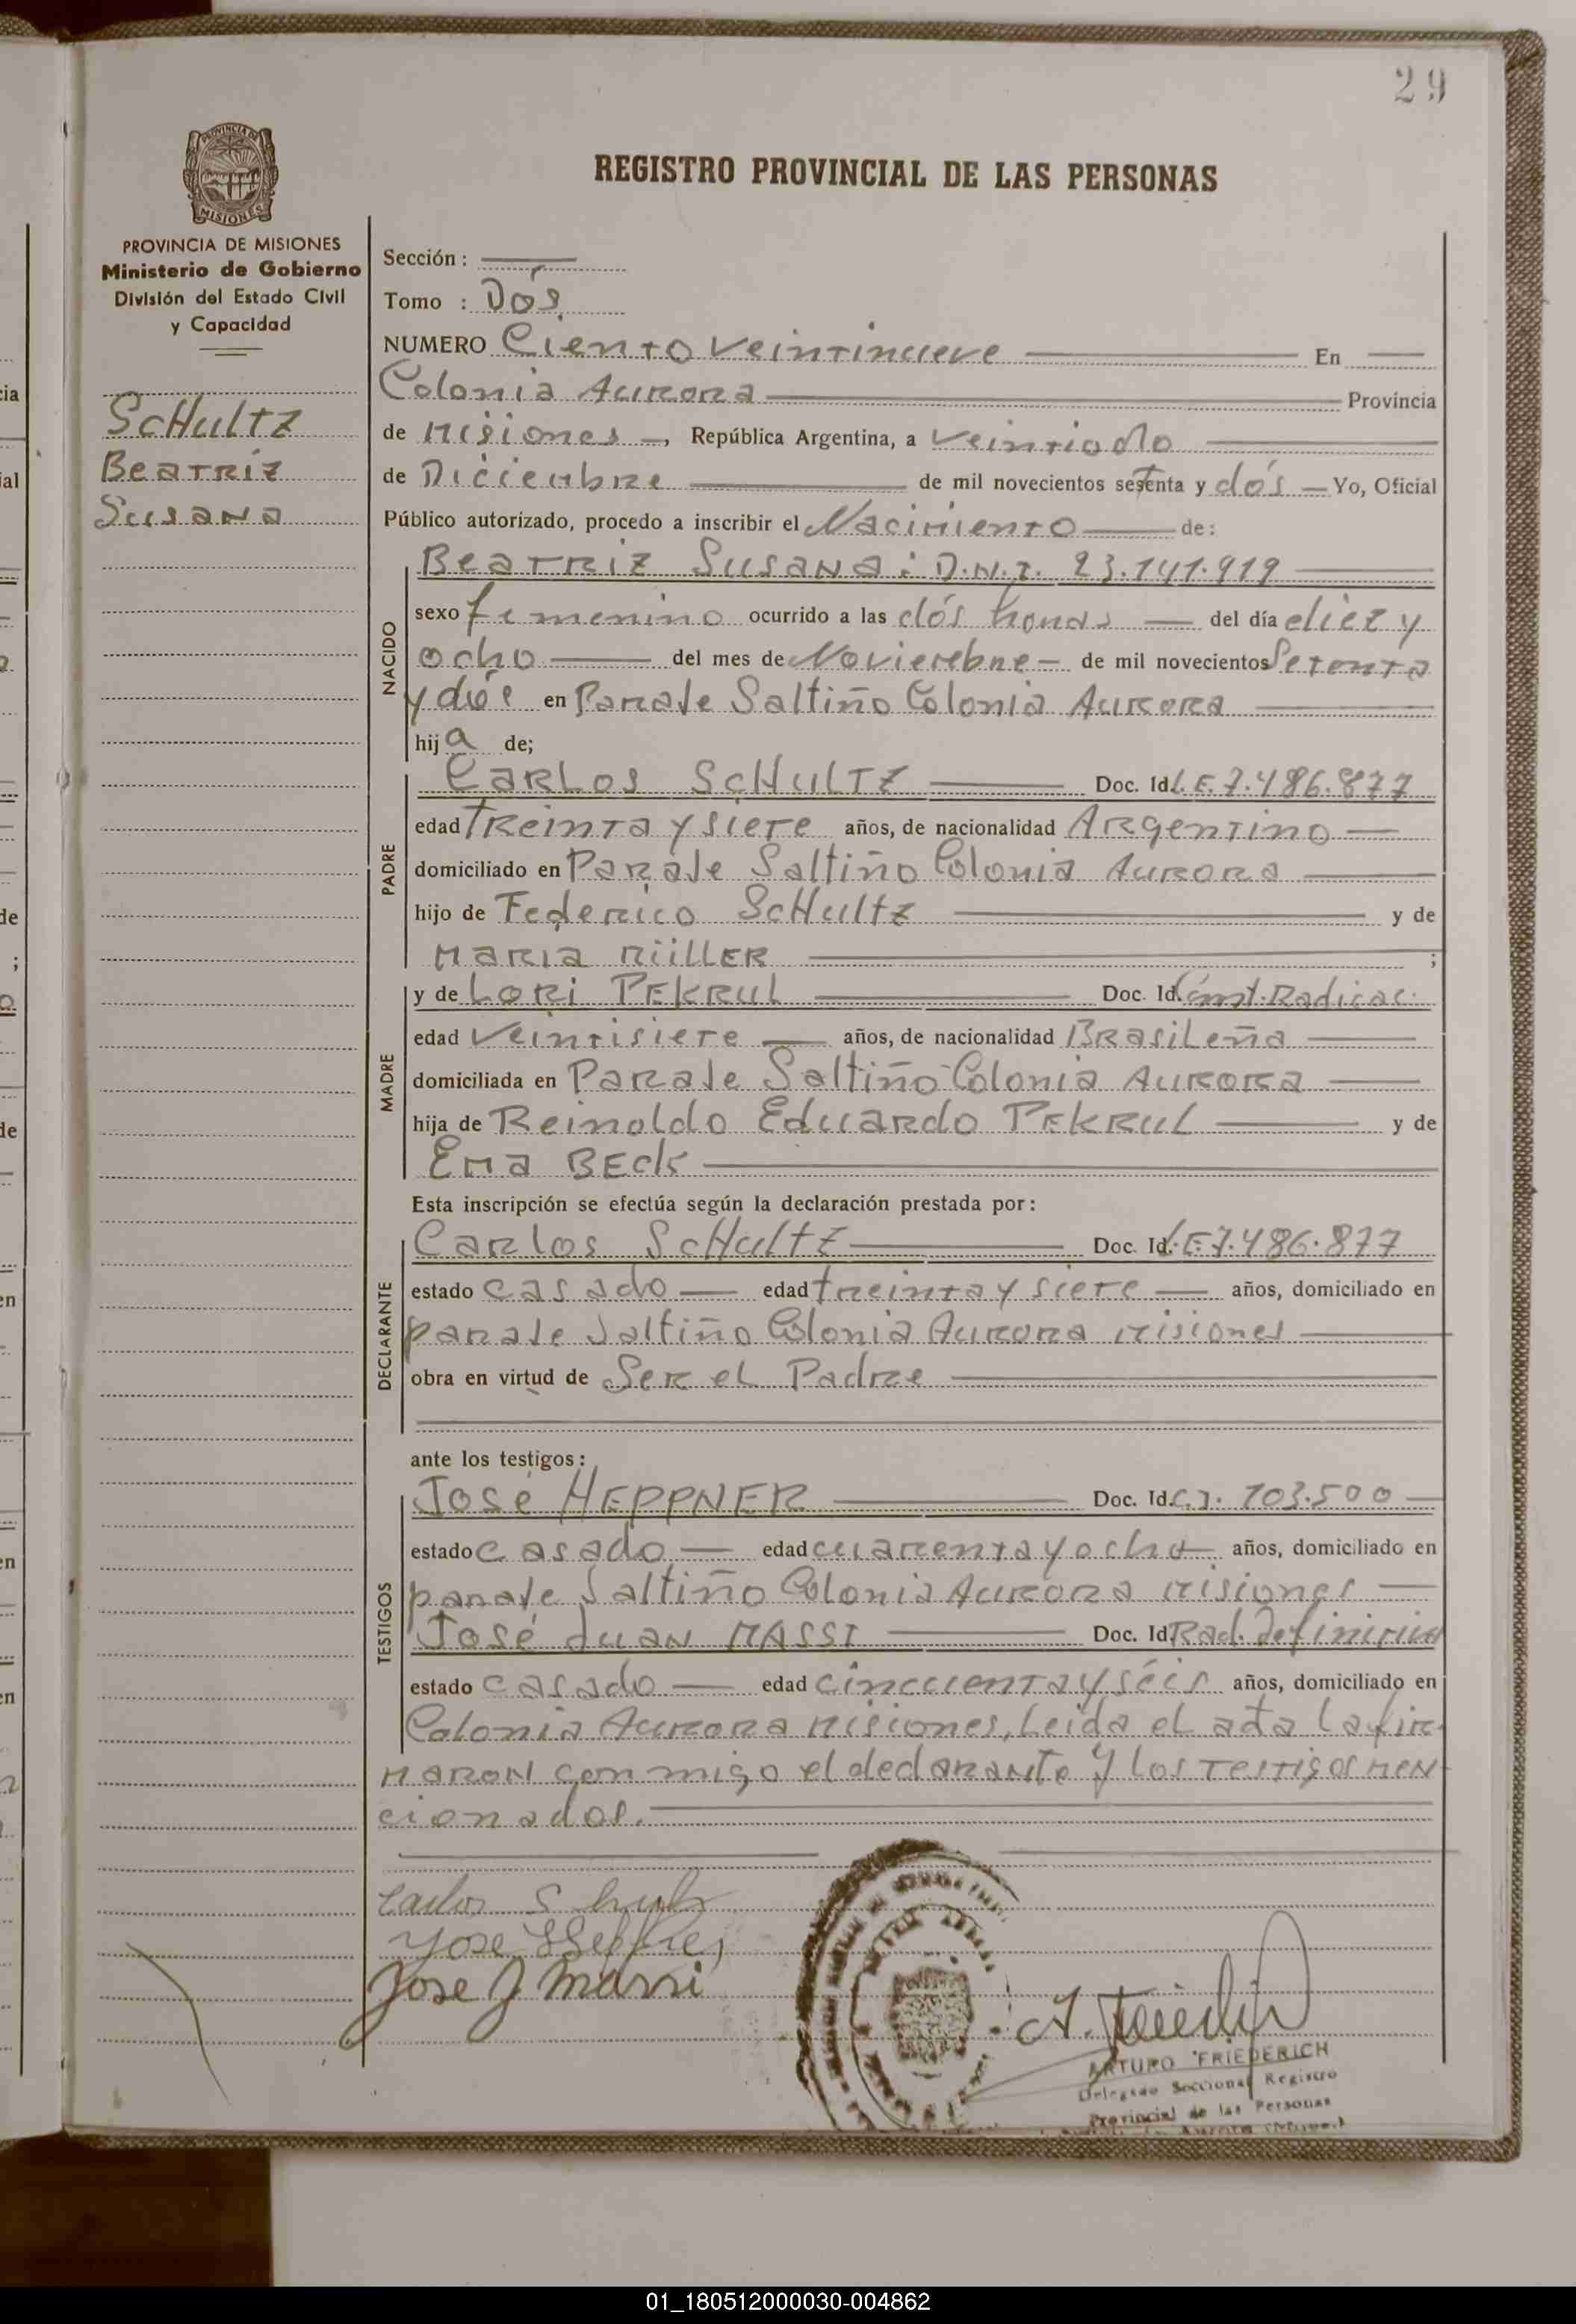 29
PROVINCIA DE MISIONES
REGISTRO PROVINCIAL DE LAS PERSONAS
PROVINCIA DE MISIONES
Ministerio de Gobierno
División del Estado Civil
y Capacidad
SCHultz
BEATRIZ
SUSANA
Sección :
Tomo : Dós
NUMERO Ciento veintinueve En
Colonia Aurora Provincia
de Misiones, República Argentina, a veintiodo
de Diciembre de mil novecientos setenta y dós Yo, Oficial
Público autorizado, procedo a inscribir el Nacimiento de:
BEATRIZ SUSANA: D.N.I. 23.141.919
NACIDO
sexo femenino ocurrido a las dós horas del día diez y
ocho del mes de Noviembre de mil novecientos Setenta
y dós en Paraje Saltiño Colonia Aurora
hija de;
PADRE
CARLOS SCHULTZ Doc. Id. L.E. 7.486.877
edad Treinta y siete años, de nacionalidad Argentino
domiciliado en Paraje Saltiño Colonia Aurora
hijo de Federico SCHultz y de
MARIA MüLLER ;
MADRE
y de LORI PEKRUL Doc. Id. Const. Radicac.
edad veintisiete años, de nacionalidad BRasiLeña
domiciliada en Paraje Saltiño Colonia Aurora
hija de Reinoldo Eduardo PEKRUL y de
Ema BECK
Esta inscripción se efectúa según la declaración prestada por:
DECLARANTE
Carlos SCHultz Doc. Id. L.E. 7.486.877
estado casado edad treinta y siete años, domiciliado en
paraje Saltiño Colonia Aurora Misiones
obra en virtud de Ser el Padre
ante los testigos:
TESTIGOS
José HEPPNER Doc. Id. C.I. 103.500
estado casado edad cuarenta y ocho años, domiciliado en
paraje Saltiño Colonia Aurora Misiones
José Juan MASSI Doc. Id. Rad. Definitiva
estado casado edad cincuenta y séis años, domiciliado en
Colonia Aurora Misiones, Leída el acta la fir-
MARON conmigo el declarante y los testigos MEN-
cionados.
Carlos Schultz
Jose Heppner
Jose J Massi
A. Friederich
ARTURO FRIEDERICH
Delegado Seccional Registro
Provincial de las Personas
01_180512000030-004862